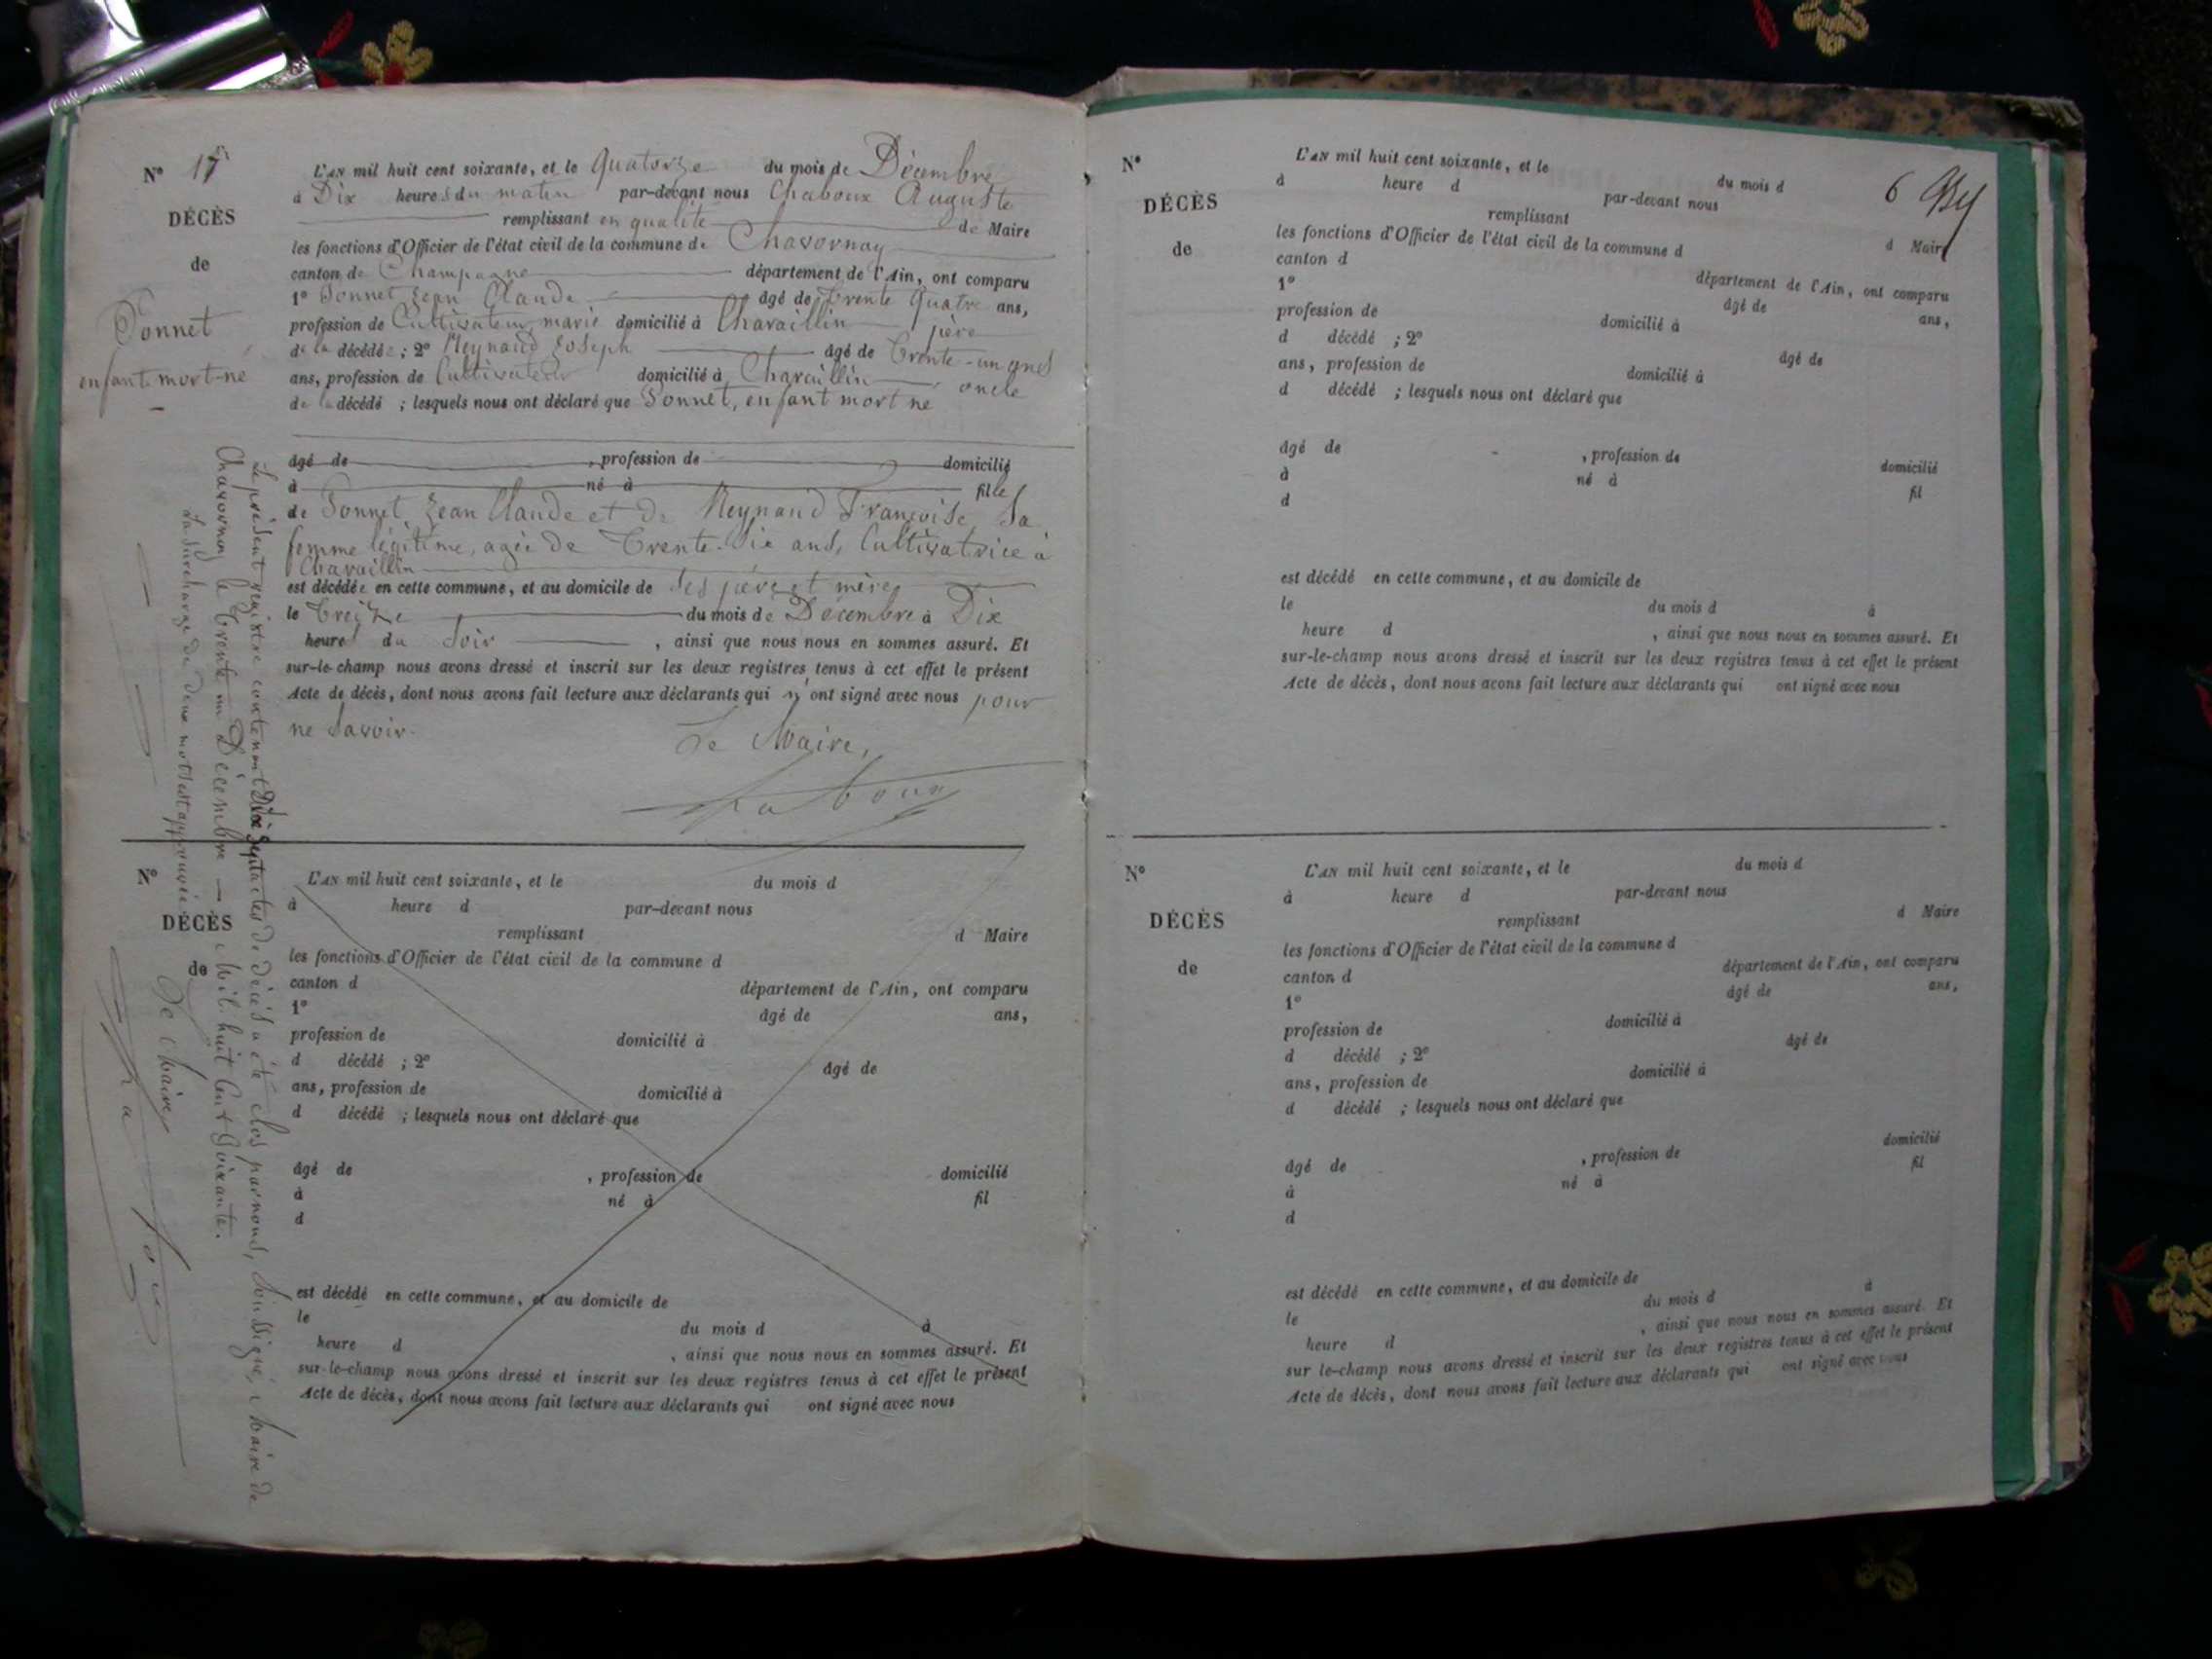 N° 17
DÉCÈS
de
Ponnet
enfant mort-né
L'AN mil huit cent soixante, et le Quatorze du mois de Décembre
à Dix heures du matin par-devant nous Chaboux Auguste
remplissant en qualité de Maire
les fonctions d'Officier de l'état civil de la commune de Chavornay
canton de Champagne département de l'Ain, ont comparu
1° Ponnet Jean Claude âgé de Trente Quatre ans,
profession de Cultivateur, marié domicilié à Charaillin père
de la décédée ; 2° Reynaud Joseph âgé de Trente-un ans
ans, profession de Cultivateur domicilié à Charaillin oncle
de la décédé ; lesquels nous ont déclaré que Ponnet, enfant mort né
âgé de , profession de domicilié
à né à fille
de Ponnet Jean Claude et de Reynaud Françoise, Sa
femme légitime, agée de Trente-Six ans, Cultivatrice à
Charaillin
est décédée en cette commune, et au domicile de Ses père et mère
le Treize du mois de Décembre à Dix
heures du Soir , ainsi que nous nous en sommes assuré. Et
sur-le-champ nous avons dressé et inscrit sur les deux registres tenus à cet effet le présent
Acte de décès, dont nous avons fait lecture aux déclarants qui n'ont signé avec nous pour
ne Savoir.
Le Maire,
Chaboux
Le présent registre contenant Dix Sept actes de décès a été clos par nous, Soussigné, Maire de
Chavornay le Trente un Décembre Mil huit Cent Soixante.
La Surcharge de deux mots est approuvée
Le Maire,
Chaboux
N°
DÉCÈS
de
L'AN mil huit cent soixante, et le du mois d
à heure d par-devant nous
remplissant d Maire
les fonctions d'Officier de l'état civil de la commune d
canton d département de l'Ain, ont comparu
1° âgé de ans,
profession de domicilié à
d décédé ; 2° âgé de
ans, profession de domicilié à
d décédé ; lesquels nous ont déclaré que
âgé de , profession de domicilié
à né à fil
d
est décédé en cette commune, et au domicile de
le du mois d à
heure d , ainsi que nous nous en sommes assuré. Et
sur-le-champ nous avons dressé et inscrit sur les deux registres tenus à cet effet le présent
Acte de décès, dont nous avons fait lecture aux déclarants qui ont signé avec nous
6
N°
DÉCÈS
de
L'AN mil huit cent soixante, et le du mois d
à heure d par-devant nous
remplissant d Maire
les fonctions d'Officier de l'état civil de la commune d
canton d département de l'Ain, ont comparu
1° âgé de ans,
profession de domicilié à
d décédé ; 2° âgé de
ans, profession de domicilié à
d décédé ; lesquels nous ont déclaré que
âgé de , profession de domicilié
à né à fil
d
est décédé en cette commune, et au domicile de
le du mois d à
heure d , ainsi que nous nous en sommes assuré. Et
sur-le-champ nous avons dressé et inscrit sur les deux registres tenus à cet effet le présent
Acte de décès, dont nous avons fait lecture aux déclarants qui ont signé avec nous
N°
DÉCÈS
de
L'AN mil huit cent soixante, et le du mois d
à heure d par-devant nous
remplissant d Maire
les fonctions d'Officier de l'état civil de la commune d
canton d département de l'Ain, ont comparu
1° âgé de ans,
profession de domicilié à
d décédé ; 2° âgé de
ans, profession de domicilié à
d décédé ; lesquels nous ont déclaré que
âgé de , profession de domicilié
à né à fil
d
est décédé en cette commune, et au domicile de
le du mois d à
heure d , ainsi que nous nous en sommes assuré. Et
sur le-champ nous avons dressé et inscrit sur les deux registres tenus à cet effet le présent
Acte de décès, dont nous avons fait lecture aux déclarants qui ont signé avec nous